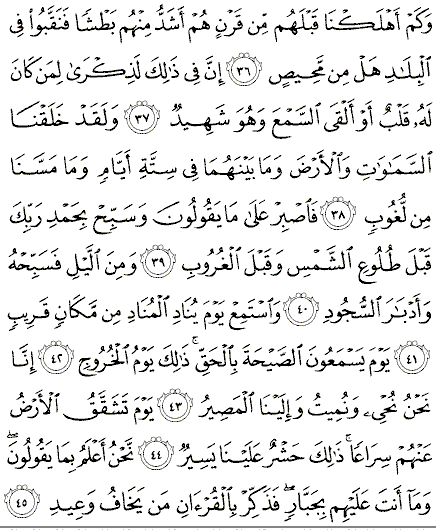 وَكَمْ أَهْلَكْنَا قَبْلَهُم مِّن قَرْنٍ هُمْ أَشَدُّ مِنْهُم بَطْشًا فَنَقَّبُوا۟ فِى
ٱلْبِلَـٰدِ هَلْ مِن مَّحِيصٍ ٣٦ إِنَّ فِى ذَٰلِكَ لَذِكْرَىٰ لِمَن كَانَ
لَهُۥ قَلْبٌ أَوْ أَلْقَى ٱلسَّمْعَ وَهُوَ شَهِيدٌ ٣٧ وَلَقَدْ خَلَقْنَا
ٱلسَّمَـٰوَٰتِ وَٱلْأَرْضَ وَمَا بَيْنَهُمَا فِى سِتَّةِ أَيَّامٍ وَمَا مَسَّنَا
مِن لُّغُوبٍ ٣٨ فَٱصْبِرْ عَلَىٰ مَا يَقُولُونَ وَسَبِّحْ بِحَمْدِ رَبِّكَ
قَبْلَ طُلُوعِ ٱلشَّمْسِ وَقَبْلَ ٱلْغُرُوبِ ٣٩ وَمِنَ ٱلَّيْلِ فَسَبِّحْهُ
وَأَدْبَـٰرَ ٱلسُّجُودِ ٤٠ وَٱسْتَمِعْ يَوْمَ يُنَادِ ٱلْمُنَادِ مِن مَّكَانٍ قَرِيبٍ
٤١ يَوْمَ يَسْمَعُونَ ٱلصَّيْحَةَ بِٱلْحَقِّ ۚ ذَٰلِكَ يَوْمُ ٱلْخُرُوجِ ٤٢ إِنَّا
نَحْنُ نُحْىِۦ وَنُمِيتُ وَإِلَيْنَا ٱلْمَصِيرُ ٤٣ يَوْمَ تَشَقَّقُ ٱلْأَرْضُ
عَنْهُمْ سِرَاعًا ۚ ذَٰلِكَ حَشْرٌ عَلَيْنَا يَسِيرٌ ٤٤ نَّحْنُ أَعْلَمُ بِمَا يَقُولُونَ ۖ
وَمَآ أَنتَ عَلَيْهِم بِجَبَّارٍ ۖ فَذَكِّرْ بِٱلْقُرْءَانِ مَن يَخَافُ وَعِيدِ ٤٥